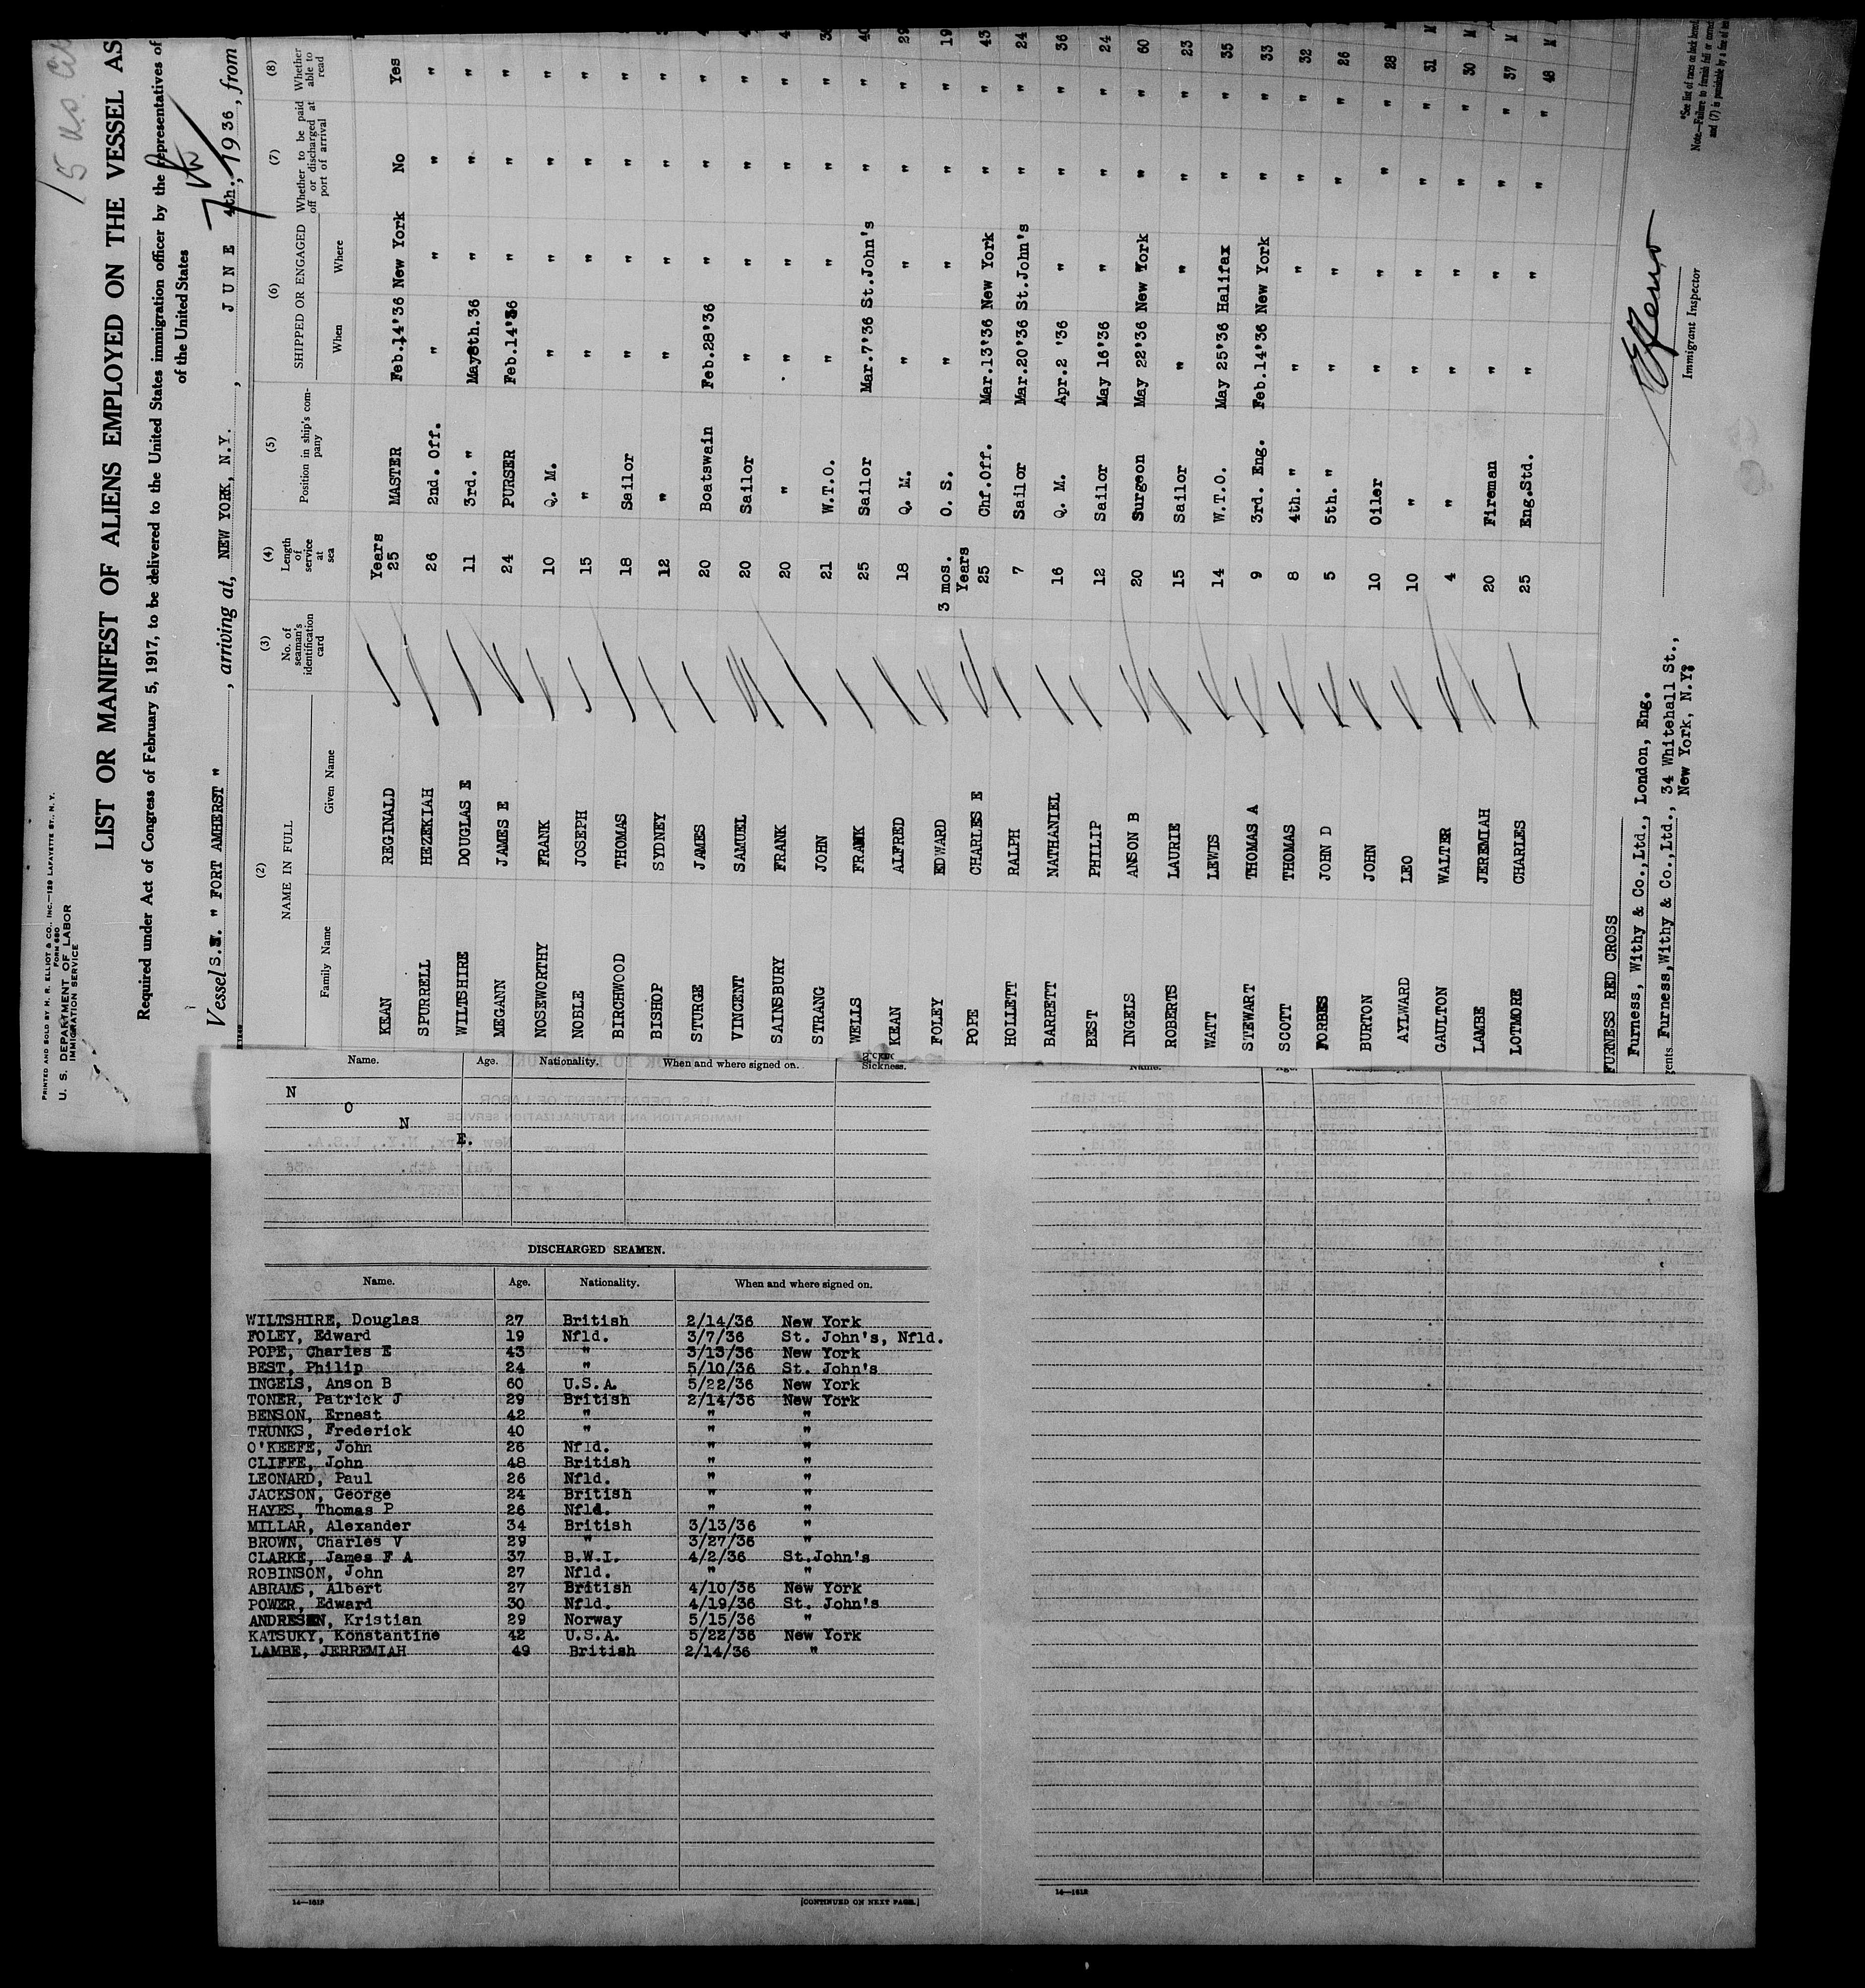 15 U.S. Cit
PRINTED AND SOLD BY H. R. ELLIOT & CO., INC.—129 LAFAYETTE ST., N. Y.
FORM 680
U. S. DEPARTMENT OF LABOR
IMMIGRATION SERVICE
LIST OR MANIFEST OF ALIENS EMPLOYED ON THE VESSEL AS
Required under Act of Congress of February 5, 1917, to be delivered to the United States immigration officer by the representatives of
of the United States
Vessel S.S. " FORT AMHERST " , arriving at, NEW YORK, N.Y. , JUNE 4th. 7th, 1936, from
(2) (3) (4) (5) (6) (7) (8)
NAME IN FULL No. of seaman's identification card Length of service at sea Position in ship's company SHIPPED OR ENGAGED Whether to be paid off or discharged at port of arrival Whether able to read
Family Name Given Name When Where
KEAN REGINALD Years 25 MASTER Feb.14'36 New York No Yes
SPURRELL HEZEKIAH 26 2nd. Off. " " " "
WILTSHIRE DOUGLAS E 11 3rd. " May8th.36 " " "
MEGANN JAMES E 24 PURSER Feb.14'36 " " "
NOSEWORTHY FRANK 10 Q. M. " " " "
NOBLE JOSEPH 15 " " " " "
BIRCHWOOD THOMAS 18 Sailor " " " "
BISHOP SYDNEY 12 " " " " "
STURGE JAMES 20 Boatswain Feb.28'36 " " "
VINCENT SAMUEL 20 Sailor " " " "
SAINSBURY FRANK 20 " " " " "
STRANG JOHN 21 W.T.O. " " " "
WELLS FRANK 25 Sailor Mar.7'36 St.John's " "
KEAN ALFRED 18 Q. M. " " " " 29
FOLEY EDWARD 3 mos. O. S. " " " " 19
POPE CHARLES E Years 25 Chf.Off. Mar.13'36 New York " " 43
HOLLETT RALPH 7 Sailor Mar.20'36 St.John's " " 24
BARRETT NATHANIEL 16 Q. M. Apr.2 '36 " " " 36
BEST PHILIP 12 Sailor May 16'36 " " " 24
INGELS ANSON B 20 Surgeon May 22'36 New York " " 60
ROBERTS LAURIE 15 Sailor " " " " 23
WATT LEWIS 14 W.T.O. May 25'36 Halifax " " 35
STEWART THOMAS A 9 3rd. Eng. Feb.14'36 New York " " 33
SCOTT THOMAS 8 4th. " " " " " 32
FORBES JOHN D 5 5th. " " " " " 26
BURTON JOHN 10 Oiler " " " " 28 M
AYLWARD LEO 10 " " " " " 31 M
GAULTON WALTER 4 " " " " " 30 M
LAMBE JEREMIAH 20 Fireman " " " " 37 M
LOTMORE CHARLES 25 Eng.Std. " " " " 48 M
FURNESS RED CROSS
Furness, Withy & Co.,Ltd., London, Eng.
gents. Furness,Withy & Co.,Ltd., 34 Whitehall St.,
New York, N.Y.
Immigrant Inspector
*See list of races on back hereof.
Note.—Failure to furnish full or correct
and (7) is punishable by a fine of ten
Name. Age. Nationality. When and where signed on. Sickness.
N
O
N
E.
DISCHARGED SEAMEN.
Name. Age. Nationality. When and where signed on.
WILTSHIRE, Douglas 27 British 2/14/36 New York
FOLEY, Edward 19 Nfld. 3/7/36 St. John's, Nfld.
POPE, Charles E 43 " 3/13/36 New York
BEST, Philip 24 " 5/10/36 St. John's
INGELS, Anson B 60 U.S.A. 5/22/36 New York
TONER, Patrick J 29 British 2/14/36 New York
BENSON, Ernest 42 " " "
TRUNKS, Frederick 40 " " "
O'KEEFE, John 26 Nfld. " "
CLIFFE, John 48 British " "
LEONARD, Paul 26 Nfld. " "
JACKSON, George 24 British " "
HAYES, Thomas P 26 Nfld. " "
MILLAR, Alexander 34 British 3/13/36 "
BROWN, Charles V 29 " 3/27/36 "
CLARKE, James F A 37 B.W.I. 4/2/36 St.John's
ROBINSON, John 27 Nfld. " "
ABRAMS, Albert 27 British 4/10/36 New York
POWER, Edward 30 Nfld. 4/19/36 St. John's
ANDRESEN, Kristian 29 Norway 5/15/36 "
KATSUKY, Konstantine 42 U.S.A. 5/22/36 New York
LAMBE, JERREMIAH 49 British 2/14/36 "
14—1612 [CONTINUED ON NEXT PAGE.]
14—1612